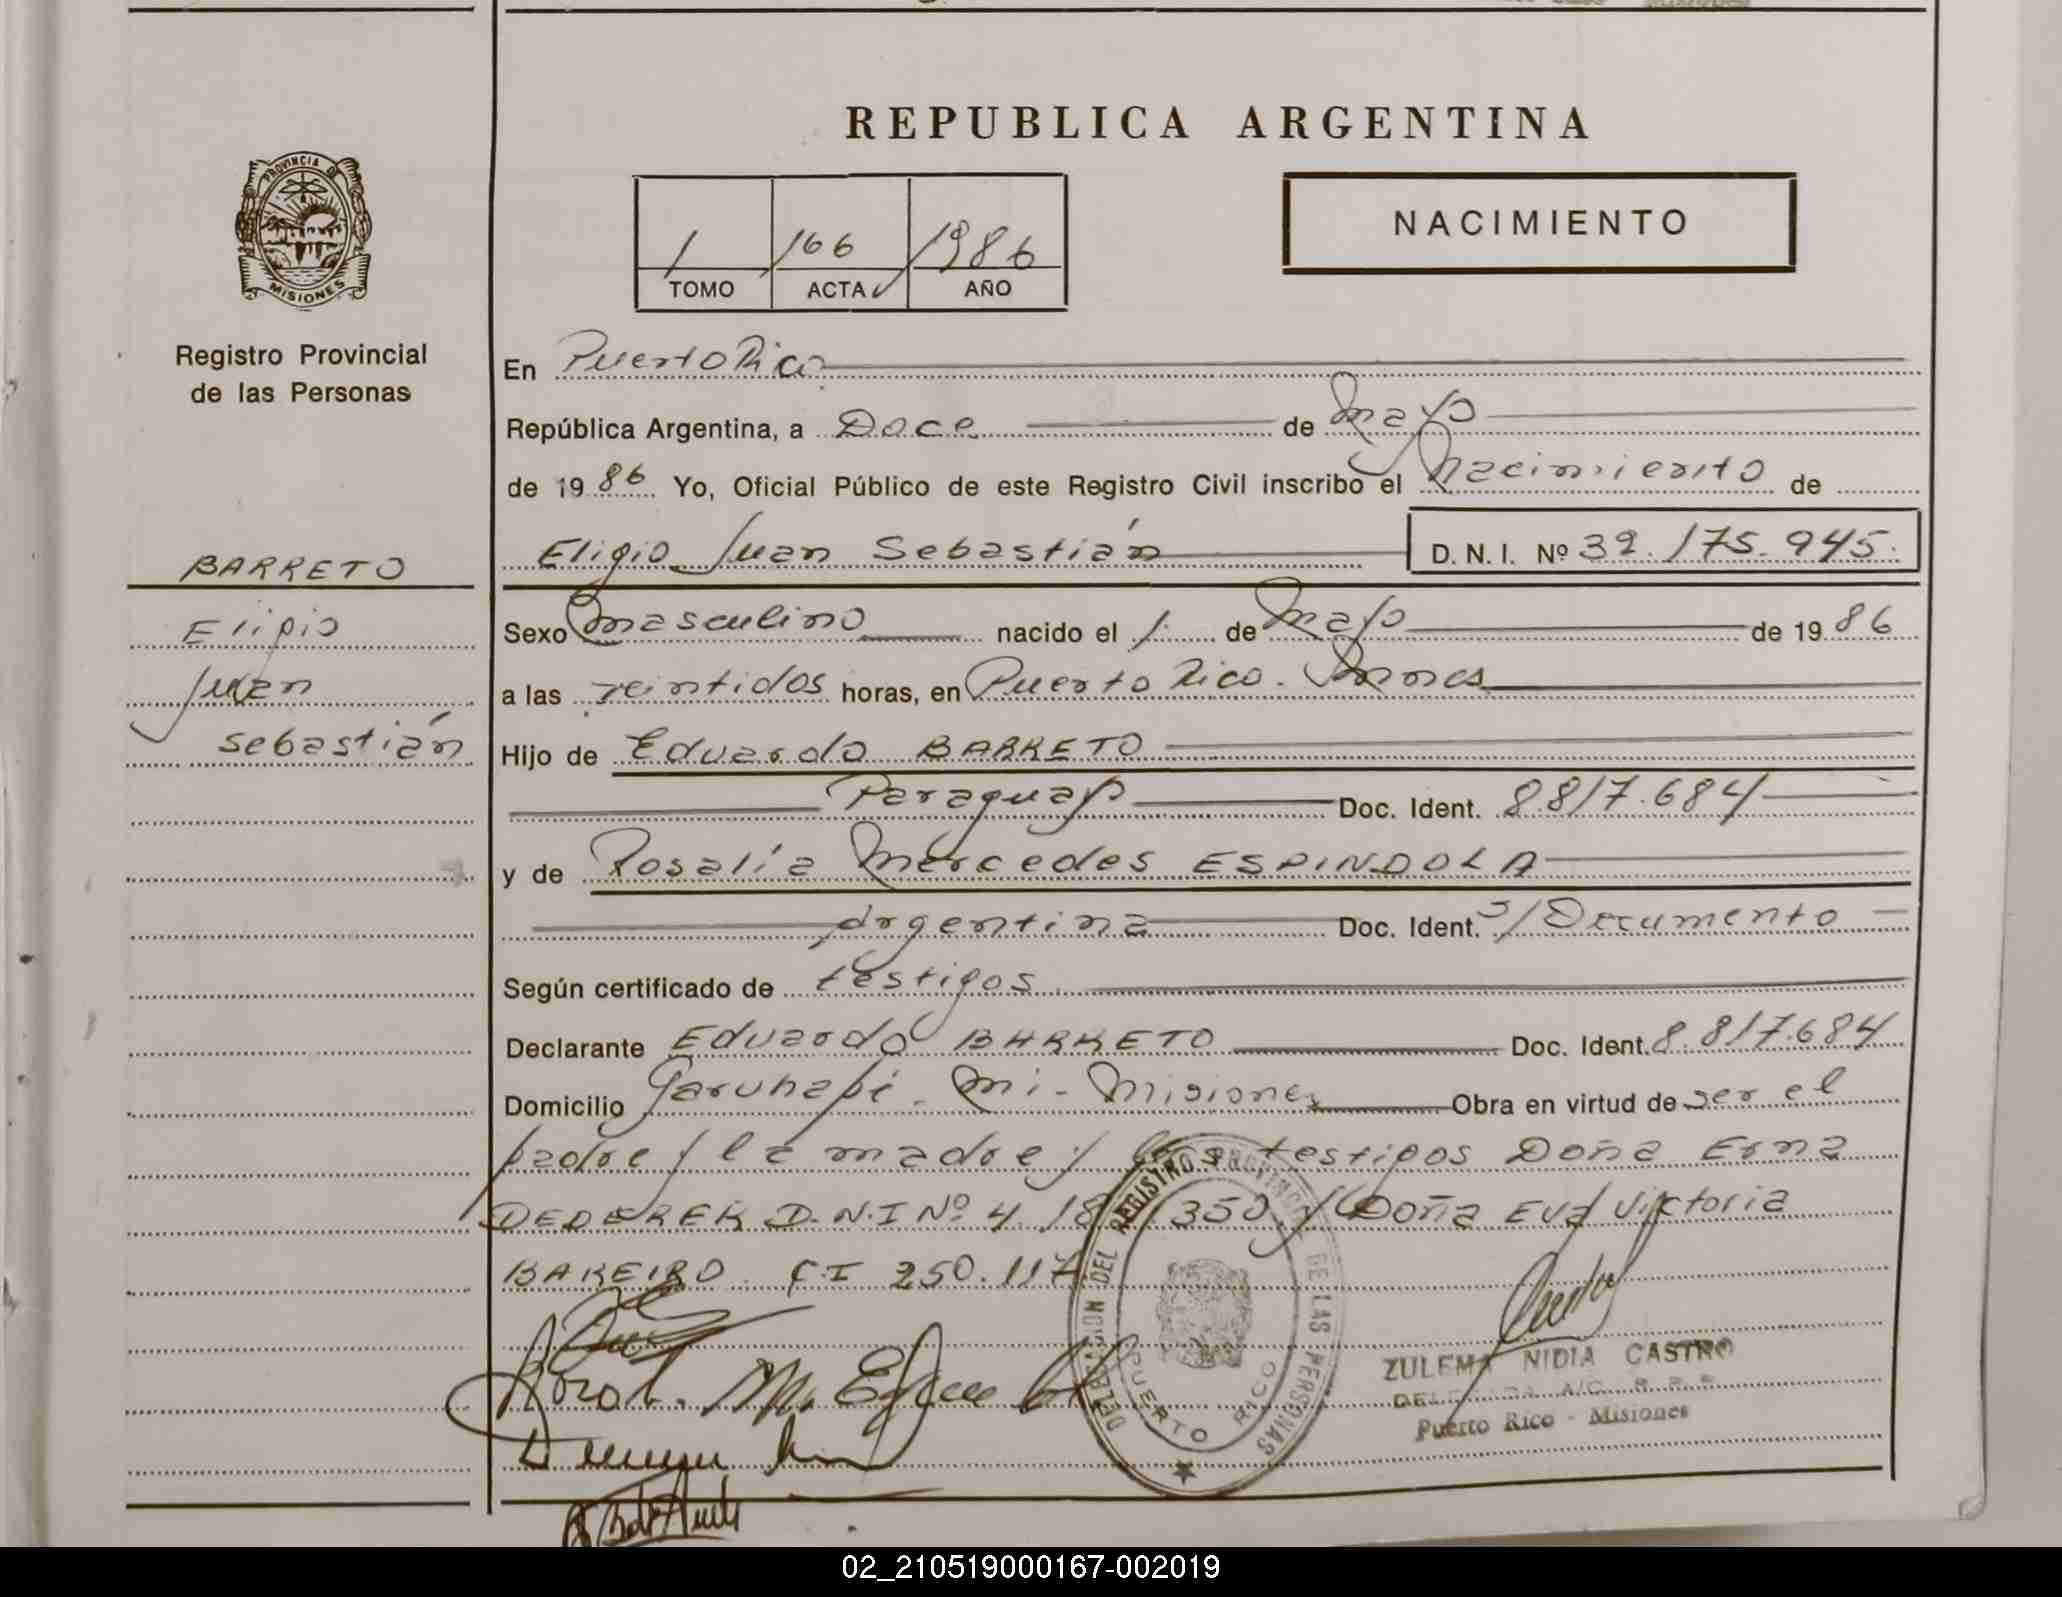 REPUBLICA ARGENTINA
PROVINCIA DE
MISIONES
Registro Provincial
de las Personas
1 166 1986
TOMO ACTA AÑO
NACIMIENTO
En Puerto Rico
República Argentina, a Doce de Mayo
de 1986 Yo, Oficial Público de este Registro Civil inscribo el Nacimiento de
Eligio Juan Sebastián D.N.I. Nº 32.175.945.
BARRETO
Eligio
Juan
Sebastián
Sexo Masculino nacido el 1 de Mayo de 1986
a las veintidos horas, en Puerto Rico. Mnes
Hijo de Eduardo BARRETO
Paraguay Doc. Ident. 8.817.684
y de Rosalía Mercedes ESPINDOLA
Argentina Doc. Ident. S/Documento
Según certificado de testigos
Declarante Eduardo BARRETO Doc. Ident. 8.817.684
Domicilio Garuhapé. Mi- Misiones Obra en virtud de ser el
padre y la madre y los testigos Doña Erna
DEDEREK D.N.I Nº 4.18 350 y Doña Eva Victoria
BAREIRO C.I 250.117
DELEGACION DEL REGISTRO PROVINCIAL DE LAS PERSONAS
PUERTO RICO
ZULEMA NIDIA CASTRO
DELEGADA A/C R.P.P
Puerto Rico - Misiones
02_210519000167-002019